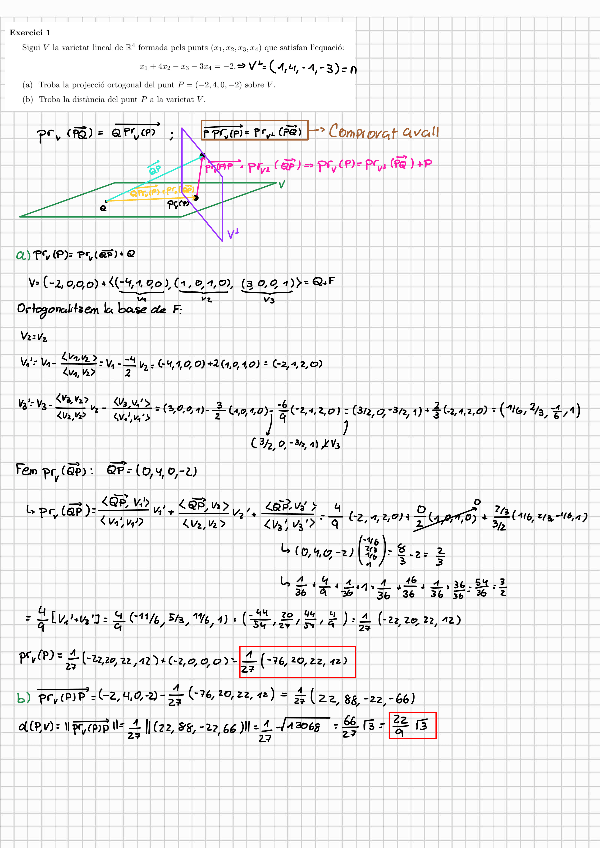 Exercici 1
Sigui V la varietat lineal de ℝ⁴ formada pels punts (x₁, x₂, x₃, x₄) que satisfan l'equació:
x₁ + 4x₂ − x₃ − 3x₄ = −2. ⇒ V⊥ = (1,4,-1,-3) = n
(a) Troba la projecció ortogonal del punt P = (−2, 4, 0, −2) sobre V.
(b) Troba la distància del punt P a la varietat V.
pr_V (PQ) = Q pr_V(P) ; P pr_V(P) = pr_V⊥ (PQ) → Comprovat avall
QP
pr_V(P)P = pr_V⊥ (QP) ⇒ pr_V(P) = pr_V⊥ (PQ) + P
V
Q
pr_V(P)
V⊥
a) pr_V(P) = pr_V(QP) + Q
V = (-2,0,0,0) + <(-4,1,0,0), (1,0,1,0), (3,0,0,1)> = Q+F
V₁ V₂ V₃
Ortogonalitzem la base de F:
V₂ = V₂
V₁' = V₁ - <V₁,V₂>/<V₂,V₂> = V₁ - -4/2 V₂ = (-4,1,0,0) + 2(1,0,1,0) = (-2,1,2,0)
V₃' = V₃ - <V₃,V₂>/<V₂,V₂> V₂ - <V₃,V₁'>/<V₁',V₁'> = (3,0,0,1) - 3/2 (1,0,1,0) - -6/9 (-2,1,2,0) = (3/2,0,-3/2,1) + 2/3 (-2,1,2,0) = (1/6, 2/3, -1/6, 1)
(3/2, 0, -3/2, 1)
Fem pr_V(QP): QP = (0,4,0,-2)
↳ pr_V(QP) = <QP, V₁'>/<V₁',V₁'> V₁' + <QP, V₂>/<V₂,V₂> V₂' + <QP, V₃'>/<V₃',V₃'> = 4/9 (-2,1,2,0) + 0/2 (1,0,1,0) + 2/3/3/2 (1/6, 2/3, -1/6, 1)
0
↳ (0,4,0,-2) (-1/6 2/3 1/6 1) = 8/3 - 2 = 2/3
↳ 1/36 + 4/9 + 1/36 + 1 = 1/36 + 16/36 + 1/36 + 36/36 = 54/36 = 3/2
= 4/9 [V₁' + V₃'] = 4/9 (-11/6, 5/3, 11/6, 1) = (-44/54, 20/27, 44/54, 4/9) = 1/27 (-22,20,22,12)
pr_V(P) = 1/27 (-22,20,22,12) + (-2,0,0,0) = 1/27 (-76,20,22,12)
b) pr_V(P)P = (-2,4,0,-2) - 1/27 (-76,20,22,12) = 1/27 (22,88,-22,-66)
d(P,V) = ||pr_V(P)P|| = 1/27 ||(22,88,-22,66)|| = 1/27 √13068 = 66/27 √3 = 22/9 √3